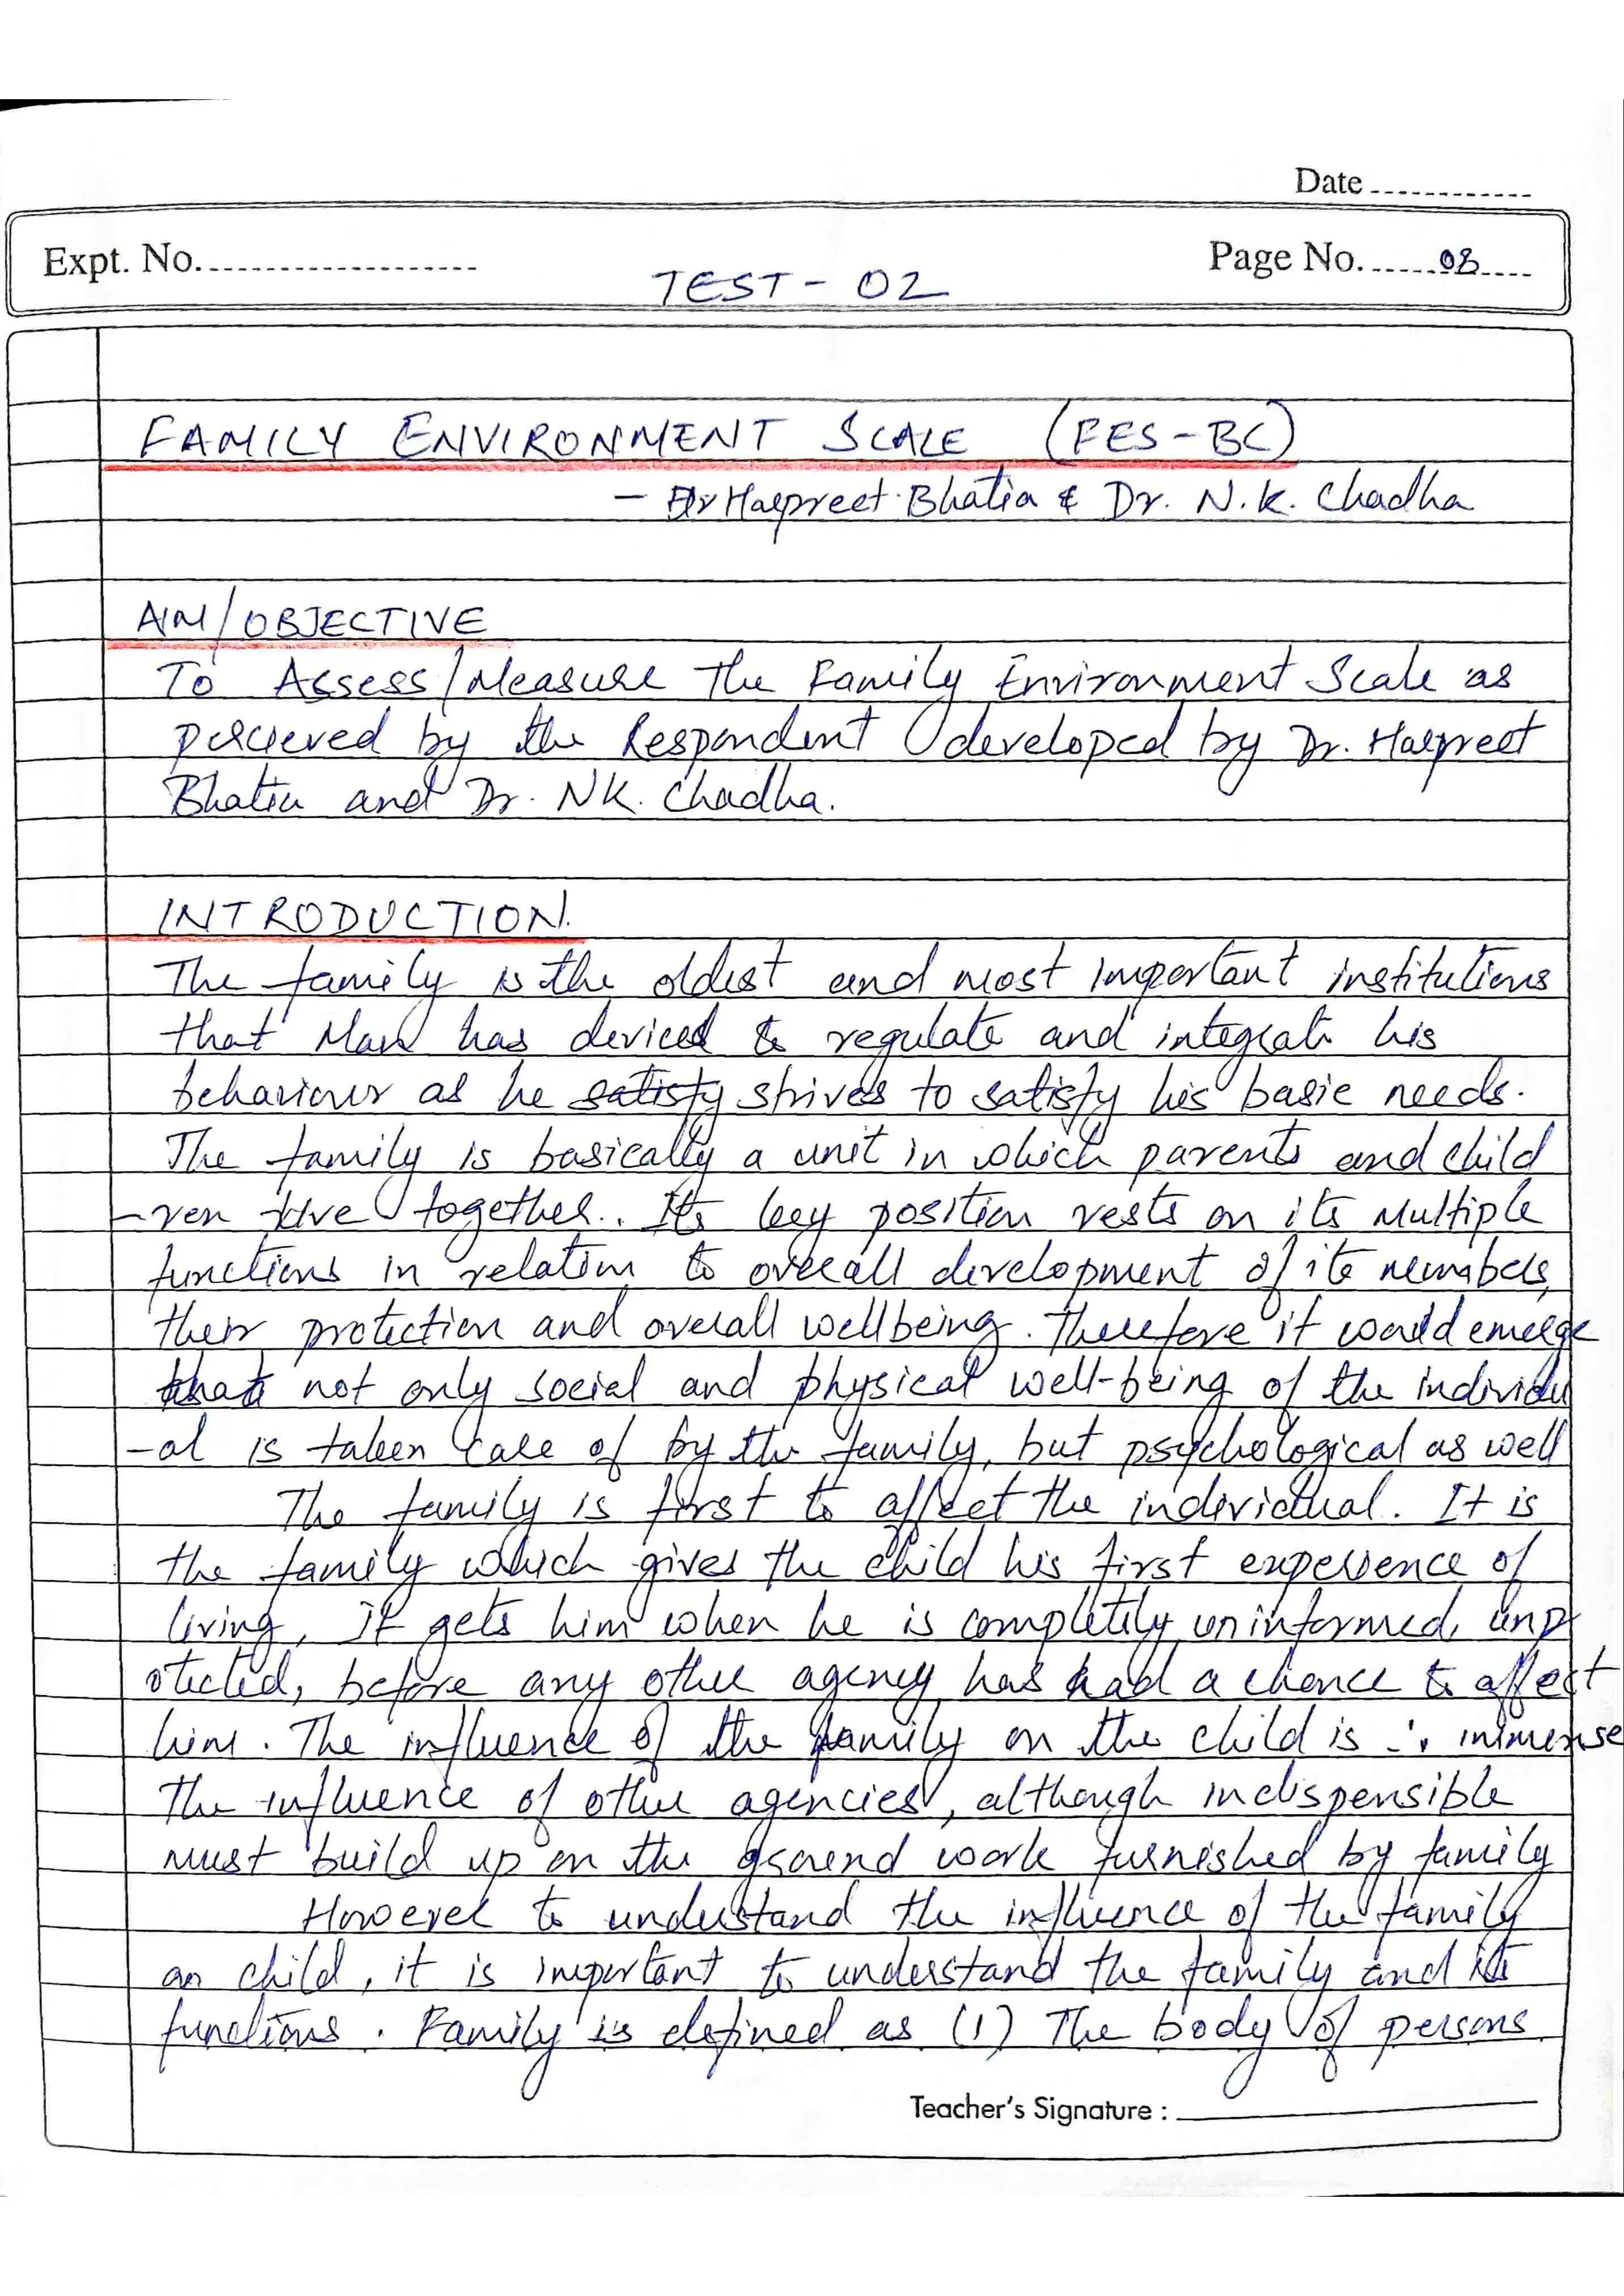 Date
Expt. No.
Page No. 08
TEST - 02
FAMILY ENVIRONMENT SCALE (FES-BC)
- Dr Harpreet Bhatia & Dr. N.K. Chadha
AIM/OBJECTIVE
To Assess/Measure The Family Environment Scale as
percieved by the Respondent developed by Dr. Harpreet
Bhatia and Dr. NK. Chadha.
INTRODUCTION.
The family is the oldest and most important institutions
that Man has deviced to regulate and integrate his
behaviour as he satisfy strives to satisfy his basic needs.
The family is basically a unit in which parents and child
-ren live together. Its key position rests on its Multiple
functions in relation to overall development of its members,
their protection and overall wellbeing. Therefore it would emerge
that not only social and physical well-being of the individu
-al is taken care of by the family, but psychological as well
The family is first to affect the individual. It is
the family which gives the child his first experience of
living, It gets him when he is completely uninformed, unp
otected, before any other agency has had a chance to affect
him. The influence of the family on the child is ∴ immense
The influence of other agencies, although indispensible
must build up on the ground work furnished by family
However to understand the influence of the family
on child, it is important to understand the family and its
functions. Family is defined as (1) The body of persons
Teacher's Signature :